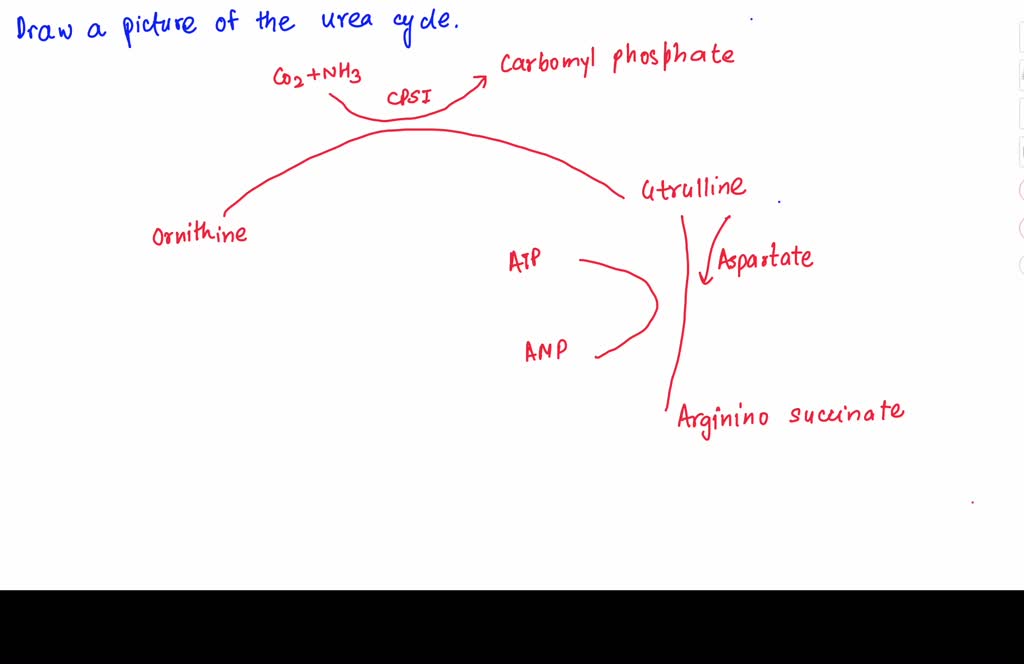 Draw a picture of the urea cycle.
CO2+NH3
CPSI
Carbomyl phosphate
Citrulline
Ornithine
ATP
Aspartate
AMP
Arginino succinate